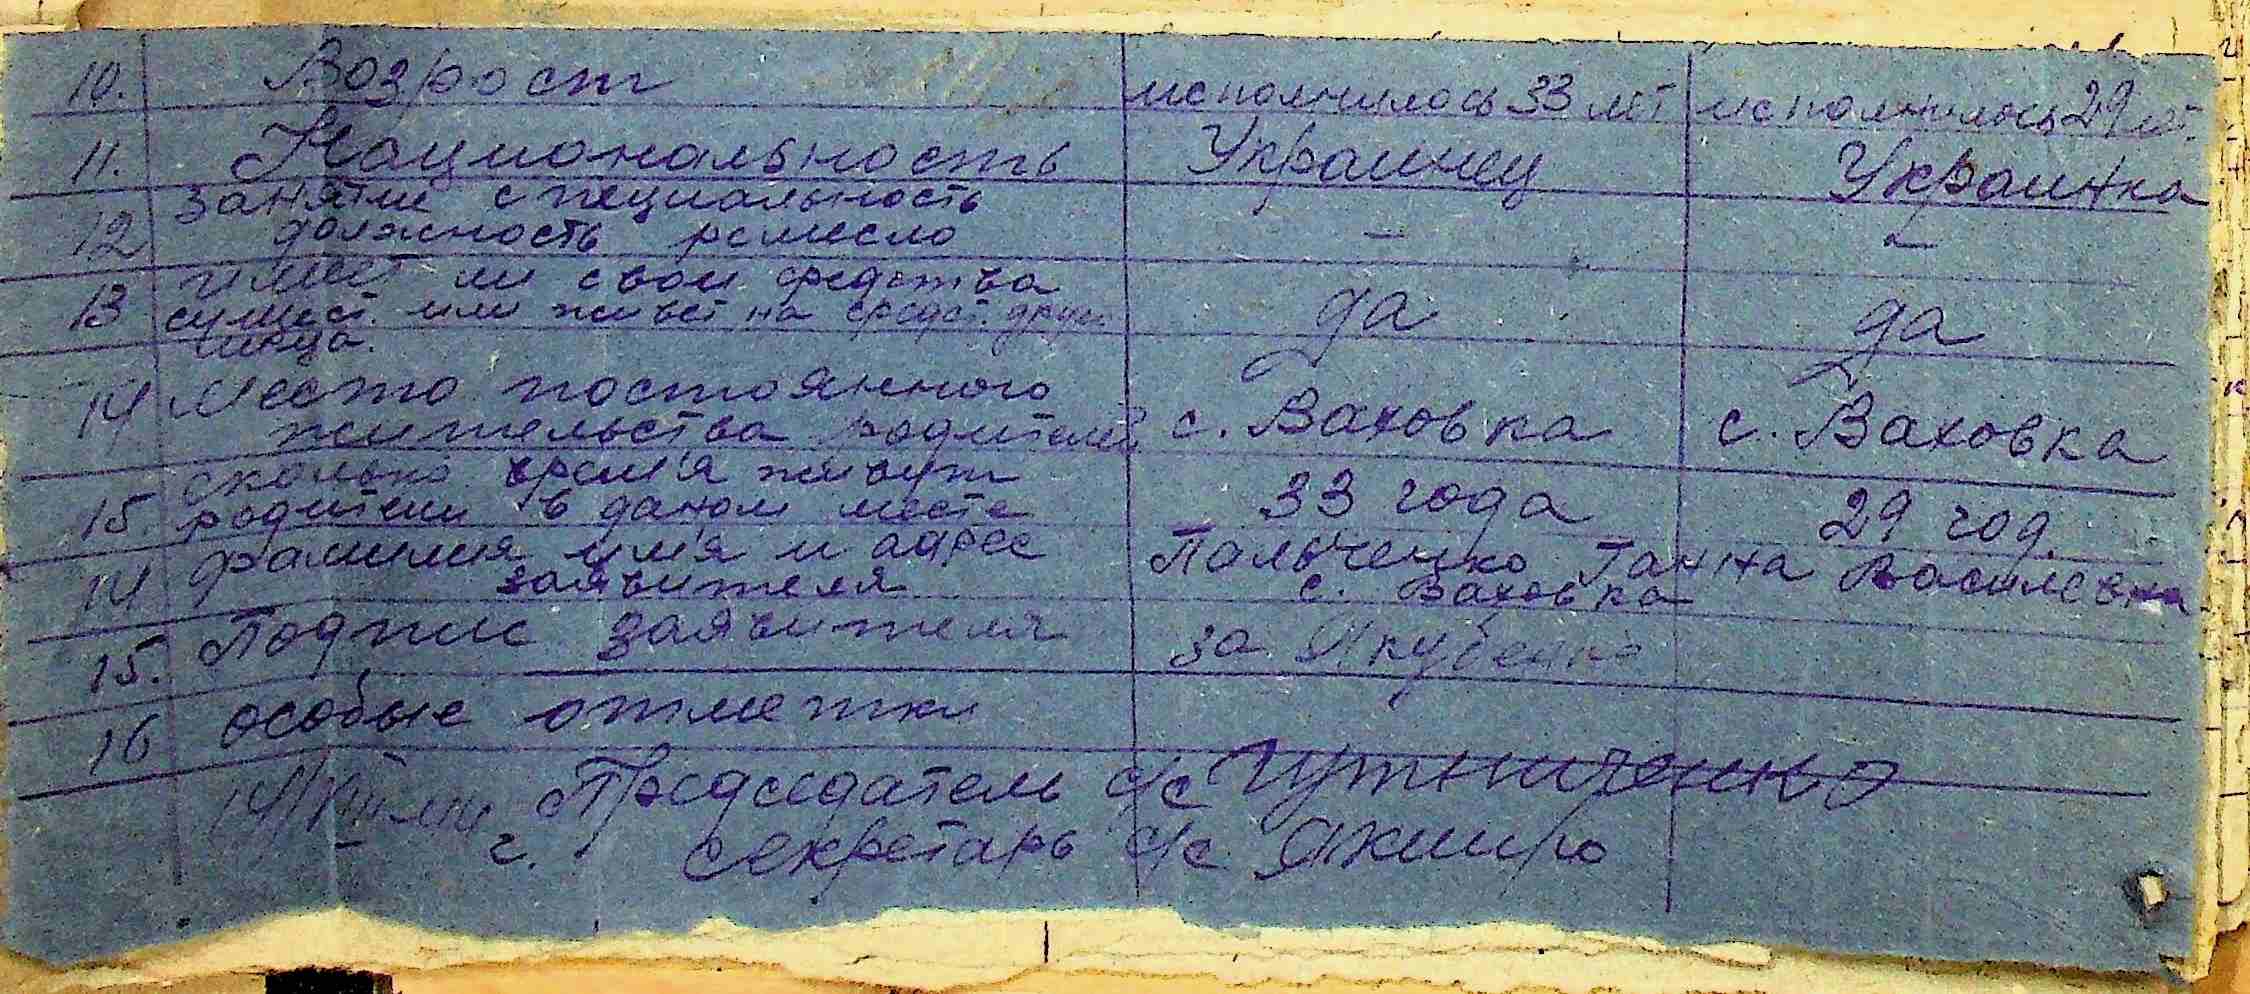 10. Возрост исполнилось 33 лет исполнилось 29 лет.
11. Национальность Украинец Украинка
12 занятие специальность
должность ремесло – –
13 имеет ли свои средства
сущест. или живет на средст. друг.
лица. да да
14 Место постоянного
жительства родителей с. Ваховка с. Ваховка
15. сколько врем'я живут
родители в даном месте 33 года 29 год.
14 фамилия им'я и адрес Пальчецко Ганна Василевна
заявителя с. Ваховка
15. Подпис заявителя за Якубенко
16 особые отметки
Председатель с/с
г. секретарь с/с